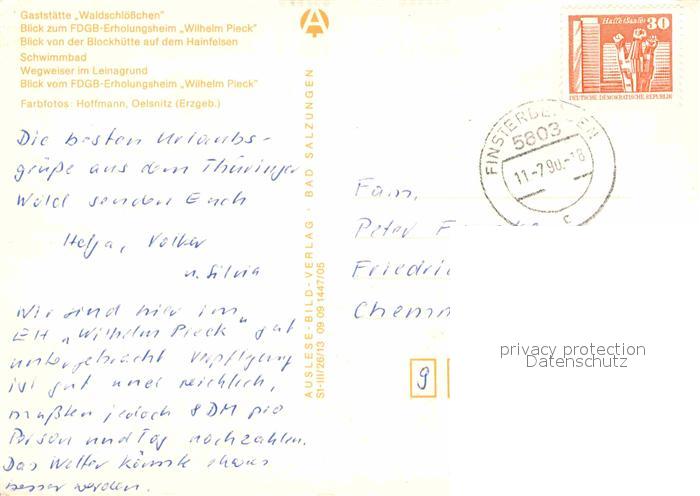 Gaststätte „Waldschlößchen"
Blick zum FDGB-Erholungsheim „Wilhelm Pieck"
Blick von der Blockhütte auf dem Hainfelsen
Schwimmbad
Wegweiser im Leinagrund
Blick vom FDGB-Erholungsheim „Wilhelm Pieck"
Farbfotos: Hoffmann, Oelsnitz (Erzgeb.)
Die besten Urlaubs-
grüße aus dem Thüringer
Wald senden Euch
Helga, Volker
u. Silvia
Wir sind hier im
EH „Wilhelm Pieck" gut
untergebracht Verpflegung
ist gut und reichlich,
mußten jedoch 8 DM pro
Person und Tag nachzahlen.
Das Wetter könnte etwas
besser werden.
AUSLESE-BILD-VERLAG · BAD SALZUNGEN
St-III/26/13 09 09 1447/05
Halle (Saale) 30
DEUTSCHE DEMOKRATISCHE REPUBLIK
FINSTERBERGEN
5803
11.-7.90.-18
c
Fam.
Peter F
Friedri
Chemn
9
privacy protection
Datenschutz